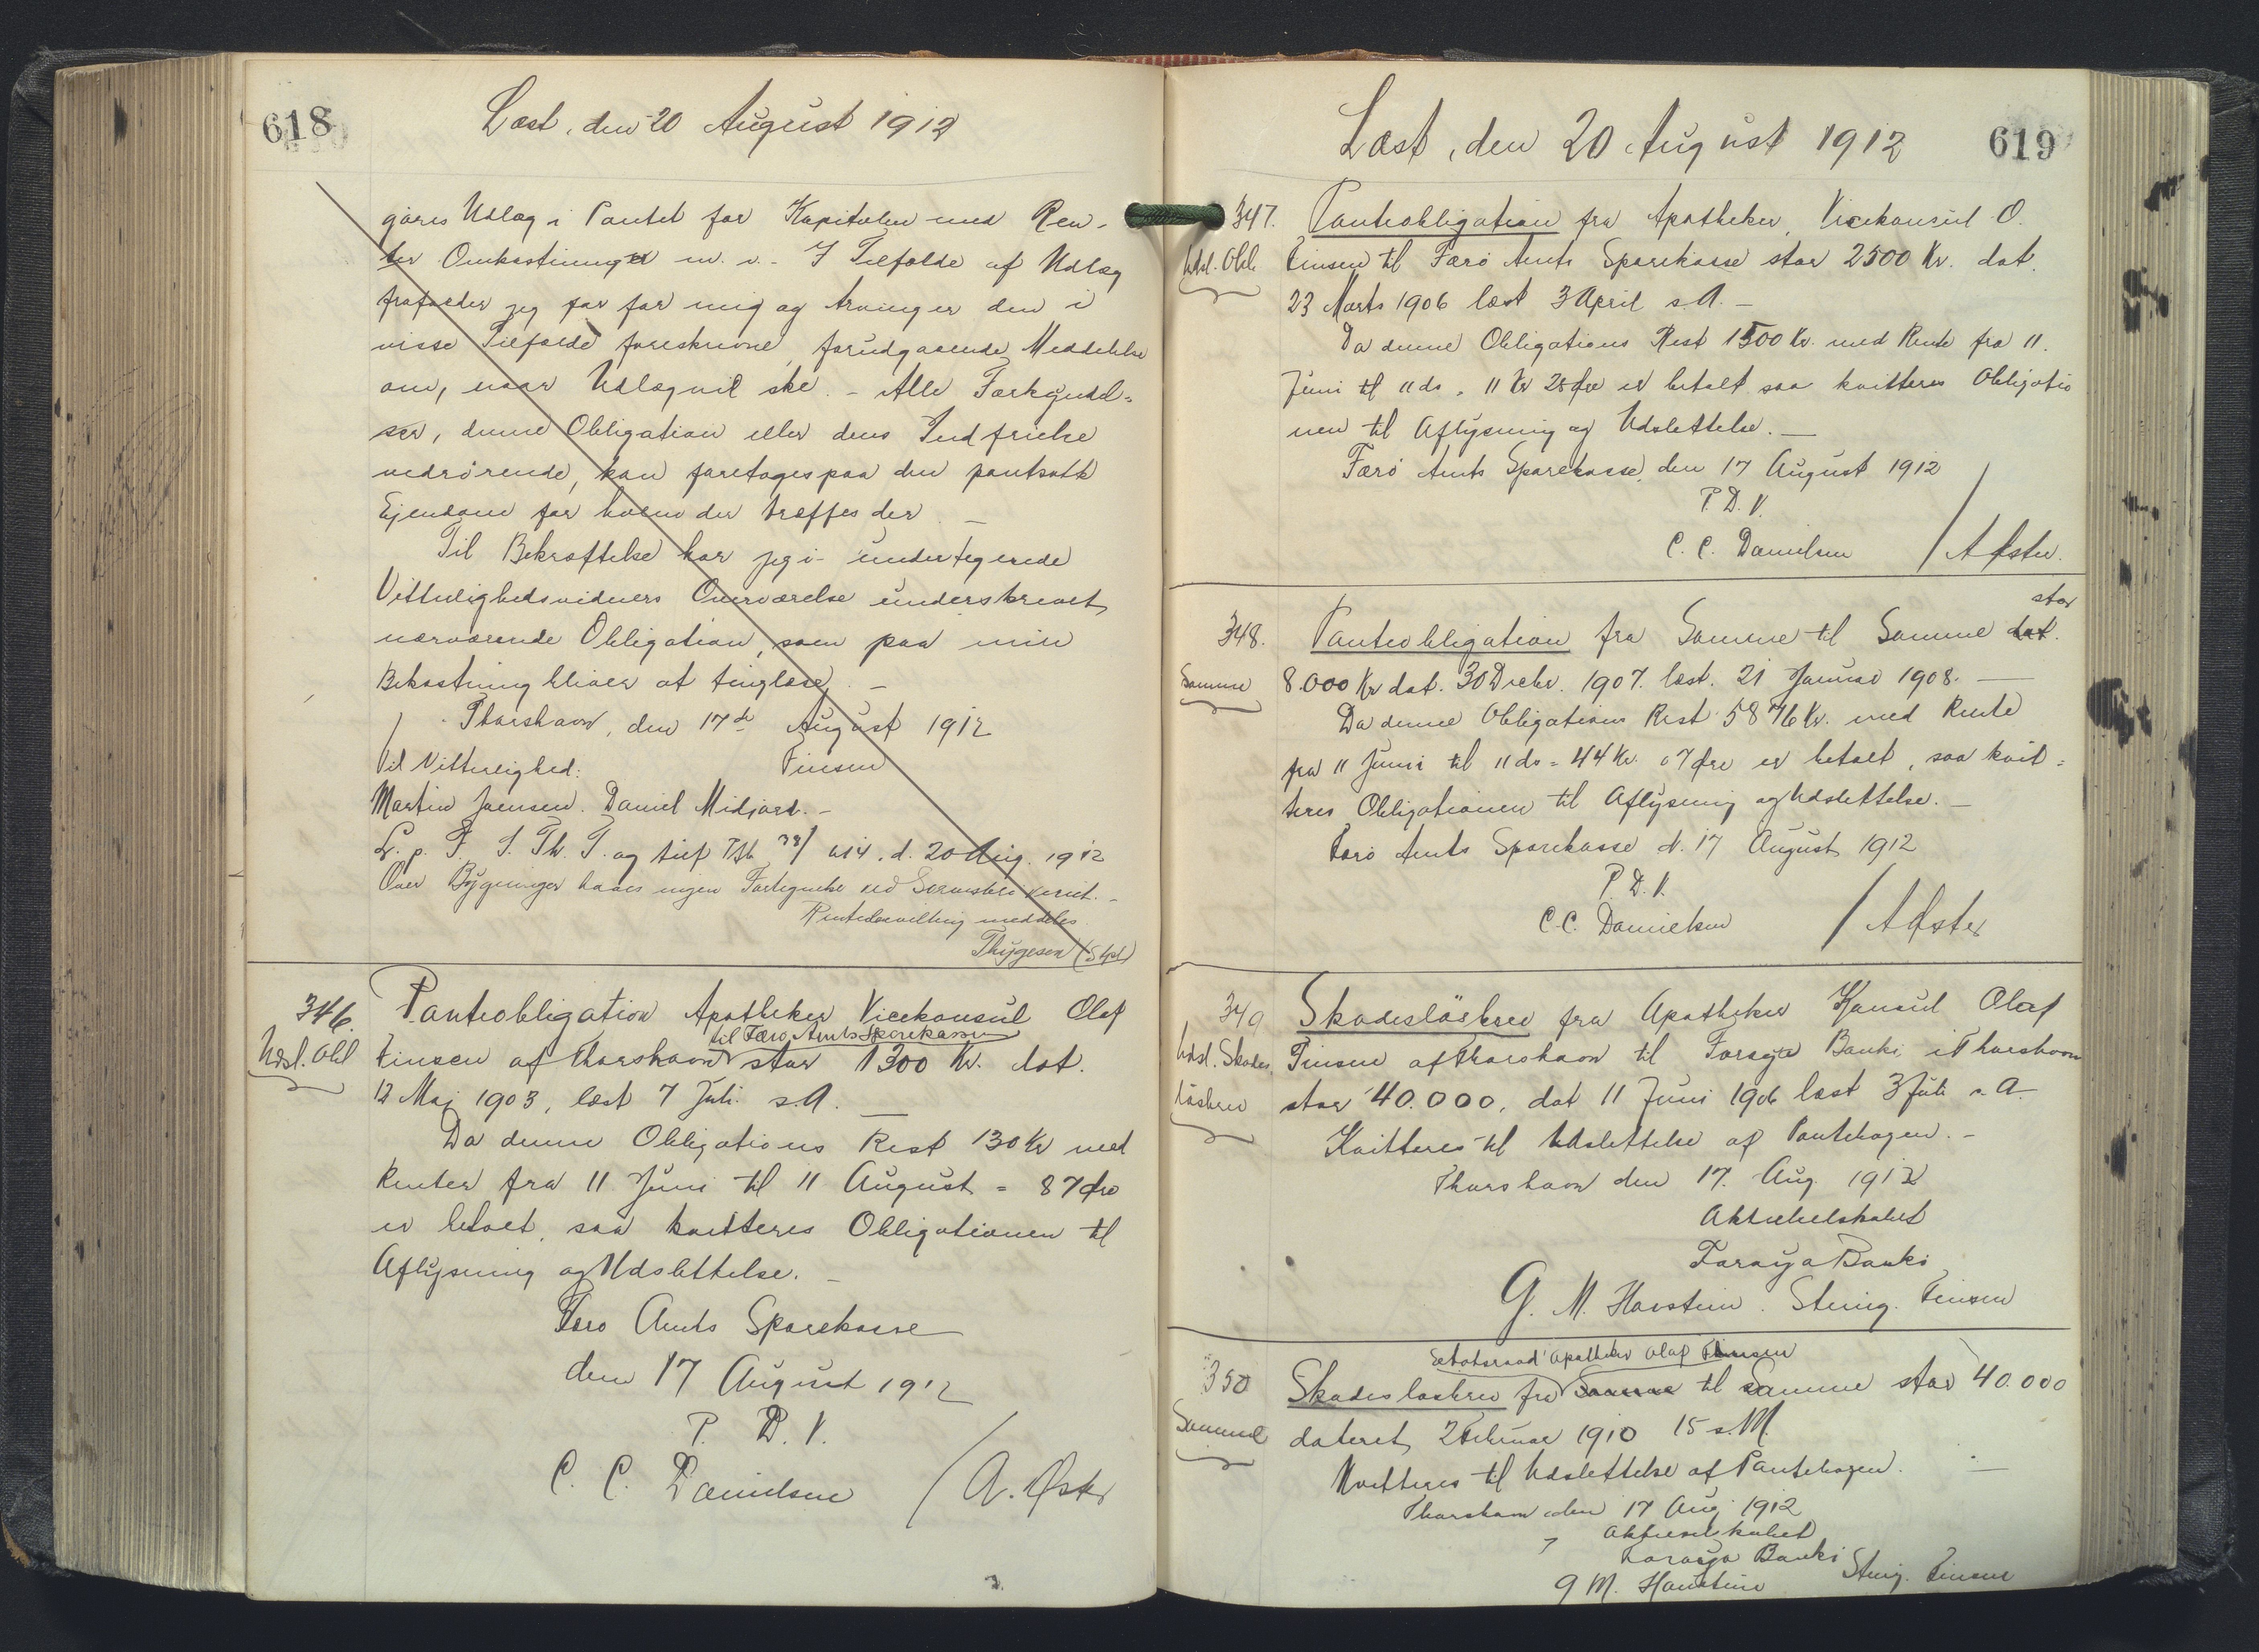 618
Læst, den 20 August 1912
gøres Udlæg i Pantet for Kapitalen med Ren-
ter Omkostninger m. v. - I Tilfælde af Udlæg
frafalder jeg for mig og Arvinger den i
visse Tilfælde foreskrevne, forudgaaende Meddelelse
om, naar Udlæg vil ske. - Alle Forkyndel-
ser, denne Obligation eller dens Indfrielse
vedrørende, kan foretages paa den pantsatte
Ejendom for hvem der træffes der. -
Til Bekræftelse har jeg i undertegnede
Vitterlighedsvidners Overværelse underskrevet
nærværende Obligation, som paa min
Bekostning bliver at tinglæse. -
Thorshavn, den 17de August 1912
Til Vitterlighed: Finsen
Martin Joensen. Daniel Midjord. -
L. p. F. S. Th. T. og tilf. d. 20 Aug. 1912
Over Bygninger haves ingen
meddeles.
Thygesen
346. Panteobligation Apotheker Vicekonsul Olaf
til Færø Amts Sparekasse
Udsl. Obl Finsen af Thorshavn stor 1300 Kr. dat.
12 Maj 1903, læst 7 Juli s.A. —
Da denne Obligations Rest 130 Kr med
Renter fra 11 Juni til 11 August = 87 Øre
er betalt, saa kvitteres Obligationen til
Aflysning og Udslettelse. -
Færø Amts Sparekasse
den 17 August 1912
P. D. V.
C. C. Danielsen / A. Øster
Læst, den 20 August 1912 619
347. Panteobligation fra Apotheker, Vicekonsul O.
Udsl. Obl. Finsen til Færø Amts Sparekasse stor 2500 Kr. dat.
23 Marts 1906 læst 3 April s.A. -
Da denne Obligations Rest 1500 Kr. med Rente fra 11.
Juni til 11 do. 11 Kr 25 Øre er betalt saa kvitteres Obligatio
nen til Aflysning og Udslettelse. —
Færø Amts Sparekasse, den 17 August 1912
P. D. V.
C. C. Danielsen / A Øster.
stor
348. Panteobligation fra Samme til Samme dat.
Samme 8.000 Kr dat. 30 Decbr. 1907. læst. 21 Januar 1908. —
Da denne Obligations Rest 5876 Kr. med Rente
fra 11 Juni til 11 do = 44 Kr. 07 Øre er betalt, saa kvit-
teres Obligationen til Aflysning og Udslettelse. -
Færø Amts Sparekasse d. 17 August 1912
P. D. V.
C. C. Danielsen / A Øster
349 Skadesløsbrev fra Apotheker Konsul Olaf
Udsl. Skades Finsen af Thorshavn til Føroya Banki i Thorshavn
løsbrev stor 40.000, dat 11 Juni 1906 læst 3 Juli s. A.
Kvitteres til Udslettelse af Pantebogen. -
Thorshavn den 17. Aug 1912
Aktieselskabet
Føroya Banki
G. M. Havsteen. Steing. Finsen
Apotheker Olaf Finsen
350 Skadesløsbrev fra Samme til Samme stor 40.000
Samme dateret 2 Februar 1910 15 s. M.
Kvitteres til Udslettelse af Pantebogen. —
Thorshavn den 17 Aug 1912
Aktieselskabet
Føroya Banki
G M. Havsteen Steing. Finsen